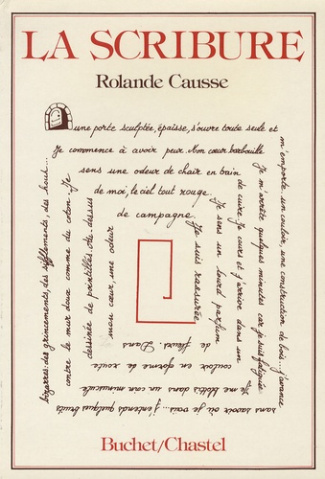 LA SCRIBURE
Rolande Causse
une porte sculptée, épaisse, s'ouvre toute seule et
m'emporte. un couloir, une construction de bois. j'avance
sans savoir où je vais... j'entends quelques bruits
bizarres: des grincements, des sifflements, des houi...
Je commence à avoir peur. Mon cœur barbouille
Je m'arrête quelques minutes car je suis fatiguée.
Je me blottis dans un coin minuscule
contre le mur doux comme du coton. Je
sens une odeur de chair en bain
de cuivre. Je cours et j'arrive dans un
couloir en forme de route
dessinée de pointillés. Au-dessus
de moi, le ciel tout rouge.
Je sens un lourd parfum
de fleurs. Dans
mon cœur, une odeur
de campagne.
Je suis rassurée.
Buchet/Chastel